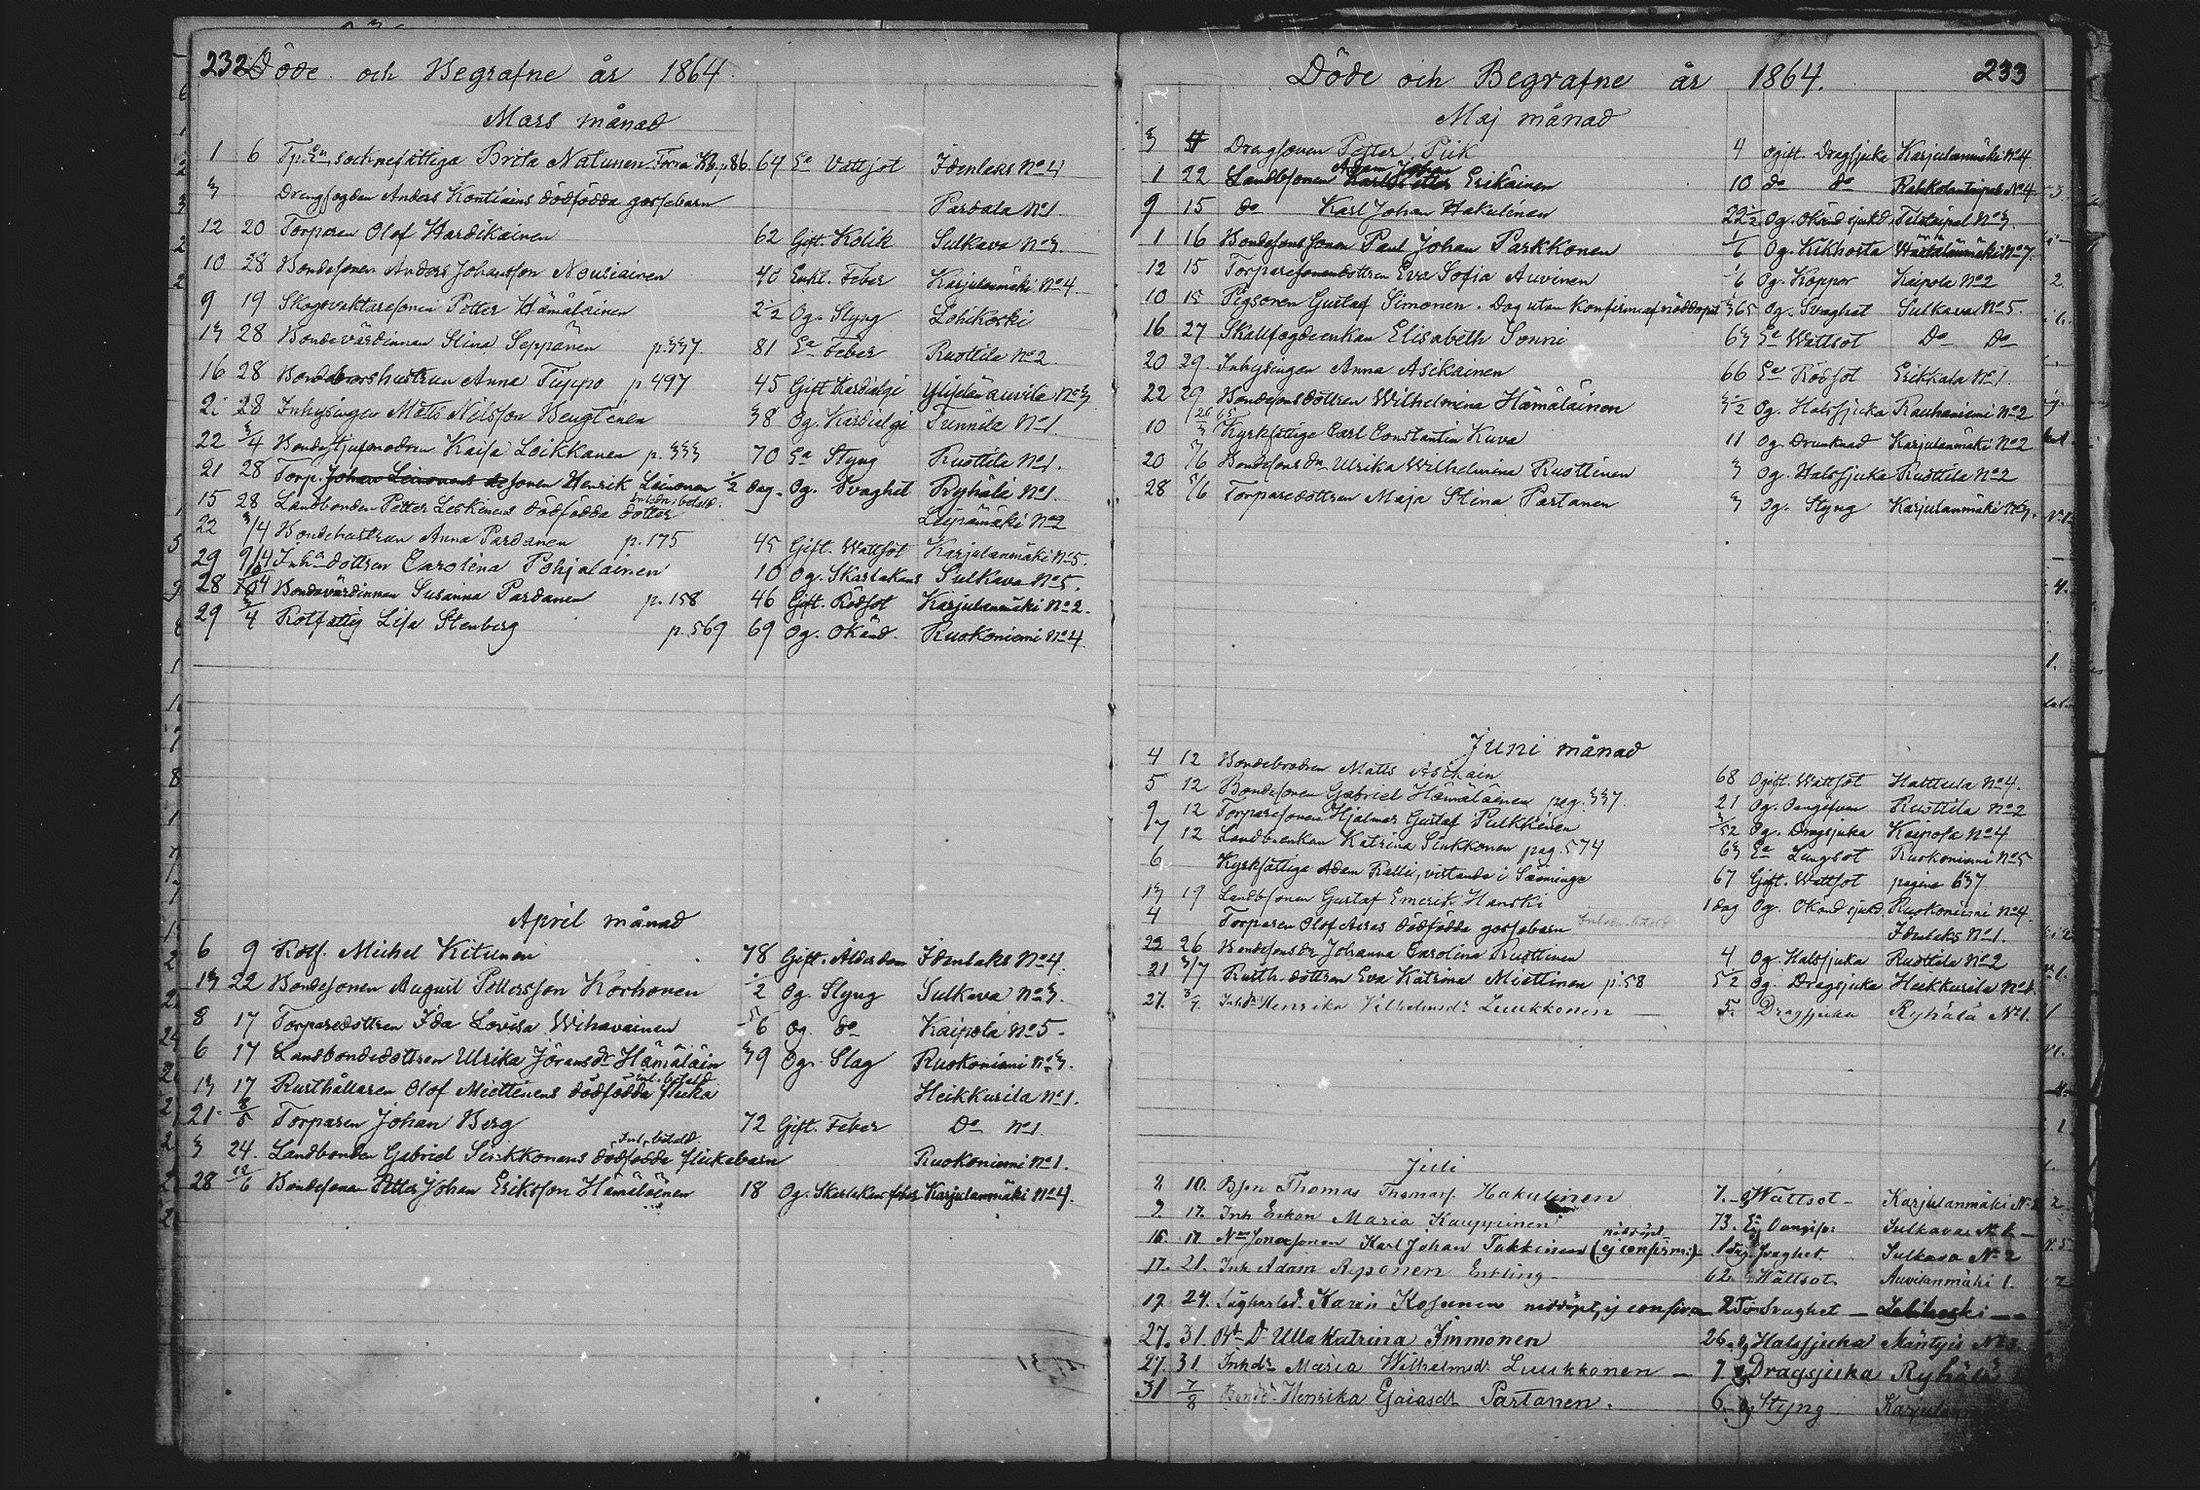 232 Döde och Begrafne år 1864.
Mars månad
1 6 socknefattiga Brita Natunen 64 Ea Vattsot Idenlaks No 4
3 Drengfogden Anders Kontiains dödfödda gossebarn Partala No 1.
12 20 Torparen Olof Hardikainen 62 Gift. Kolik Sulkava No 3.
10 28 Bondesonen Anders Johansson Nousiainen 40 Enkl. Feber Karjulanmäki No 4.
9 19 Skogvaktaresonen Petter Hämäläinen 2 1/2 Og. Styng Lohikoski
13 28 Bondevärdinnan Stina Seppänen p. 337. 81 Ea Feber Ruottila No 2
16 28 Anna Tuppo p 497 45 Gift Kardialgi No 3
21 28 Inhysingen Matts Nilsson Beugtenen 38 Og. Kardialgi Tunnila No 1.
22 3/4 Kaisa Loikkanen p. 333 70 Ea Styng Ruottila No 1.
21 28 Torp. sonen Henrik Leinonen 1/2 dag. Og. Svaghet Ryhälä No 1.
15 28 Landbonden Petter Leskinens dödfödda dotter Leipämäki No 2
22 3/4 Bondehustrun Anna Pardanen p. 175 45 Gift. Wattsot Karjulanmäki No 5.
29 9/4 Inh. dottren Carolina Pohjalainen 10 Og. Skarlakans Sulkava No 5.
28 Bondevärdinnan Susanna Pardanen p. 158 46 Gift. Rödsot Karjulanmäki No 2.
29 3/4 Rotfattig Lisa Stenberg p. 569 69 Og. Okänd. Ruokoniemi No 4
April månad
6 9 Rotf. Michel Kitunen 78 Gift. Ålderdom Idenlaks No 4.
13 22 Bondesonen August Pettersson Korhonen 1/2 Og. Styng Sulkava No 3.
8 17 Torparedottren Ida Lovisa Wihavainen 5/6 Og. do Kaipola No 5.
6 17 Landbondedottren Ulrika Jöransdr Hämäläin 39 Og. Slag Ruokoniemi No 3.
13 17 Rusthållaren Olof Miettinens dödfödda flicka Heikkurila No 1.
21 Torparen Johan Berg 72 Gift. Feber Do No 1.
3 24. Landbonden Gabriel Sinkkonens dödfödda flickebarn Ruokoniemi No 1.
28 12/6 Bondesonen Petter Johan Eriksson Hämäläinen 18 Og. Skarlakansfeber Karjulanmäki No 4.
Döde och Begrafne år 1864. 233
Maj månad
3 Drengsonen Petter Piik 4 Ogift. Dragsjuka Karjulanmäki No 4
1 22 Landbsonen Adam Johan Erikäinen 10 do do No 4.
9 15 do Karl Johan Hakulinen 22 1/2 Og. Okänd sjukd. No 3.
1 16 Bondesons sonen Paul Johan Parkkonen 1/6 Og. Kikhosta Wäätälänmäki No 7.
12 15 Torparesonendottren Eva Sofia Auvinen 1/6 Og. Koppor Kaipola No 2
10 15 Pigsonen Gustaf Simonen. Dog utan Konfirm. af nöddopet Og. Svaghet Sulkava No 5.
16 27 Skallfogdeenkan Elisabeth Sonni 63 Ea Wattsot Do Do
20 29. Inhysingen Anna Asikainen 66 Ea Rödsot Erikkala No 1.
22 29 Bondesonsdottren Wilhelmina Hämäläinen 3 1/2 Og. Halssjuka Rauhaniemi No 2
10 Kyrkfattige Carl Constantin Kuva 11 Og. Drunknad Karjulanmäki No 2
20 5/6 Bondesons dr Ulrika Wilhelmina Ruottinen 3 Og. Halssjuka Ruottila No 2
28 5/6 Torparedottren Maja Stina Partanen 3 Og. Styng Karjulanmäki No 3.
Juni månad
4 12 Bondebrodren Matts Asikain 68 Ogift. Wattsot Halttula No 4.
5 12 Bondesonen Gabriel Hämäläinen pag. 337. 21 Og. Oangifven Ruottila No 2
9 12 Torparesonen Hjalmar Gustaf Pulkkinen 3/52 Og. Dragsjuka Kaipola No 4
7 12 Landb.enkan Katrina Sinkkonen pag. 574 63 Ea Lungsot Ruokoniemi No 5
6 Kyrkfattige Adam Ralli, vistande i Sääminge 67 Gift. Wattsot pagina 637.
13 19 Landbsonen Gustaf Emerik Hanski 1 dag Og. Okänd sjukd. Ruokoniemi No 4.
4 Torparen Olof Airas dödfödda gossebarn Idenlaks No 1.
22 26 Bondesonsdr Johanna Carolina Ruottinen 4 Og. Halssjuka Ruottila No 2
21 3/7 Rusth. dottren Eva Katrina Miettinen p. 58 5 1/2 Og. Dragsjuka Heikkurila No 1.
27. 3/7 Inh. dr Henrika Vilhelmsdr Luukkonen 5. Dragsjuka Ryhälä No 1.
Juli
2 10. Bson Thomas Thomass. Hakulinen 7. Og Wattsot Karjulanmäki
9. 17. Inh Enkan Maria Kauppinen 73. Ea Oangifv: Sulkava
15. 17. Karl Johan Tukkinen (nöddöpt ej confirm:) 1 dag. Svaghet Sulkava No 2
17. 21. Inh Adam Reponen Enkling 62. Wattsot. Auvilanmäki 1.
17 24. Karin Kosunen nöddöpt, ej confirm Svaghet Lohikoski
27. 31. Ulla Katrina Immonen 26. Og Halssjuka Mäntyis
27. 31 Inh dr Maria Wilhelmsdr Luukkonen 7. Og Dragsjuka Ryhälä
31 7/8 Henrika Esaiasdr Partanen. 6. Og Styng